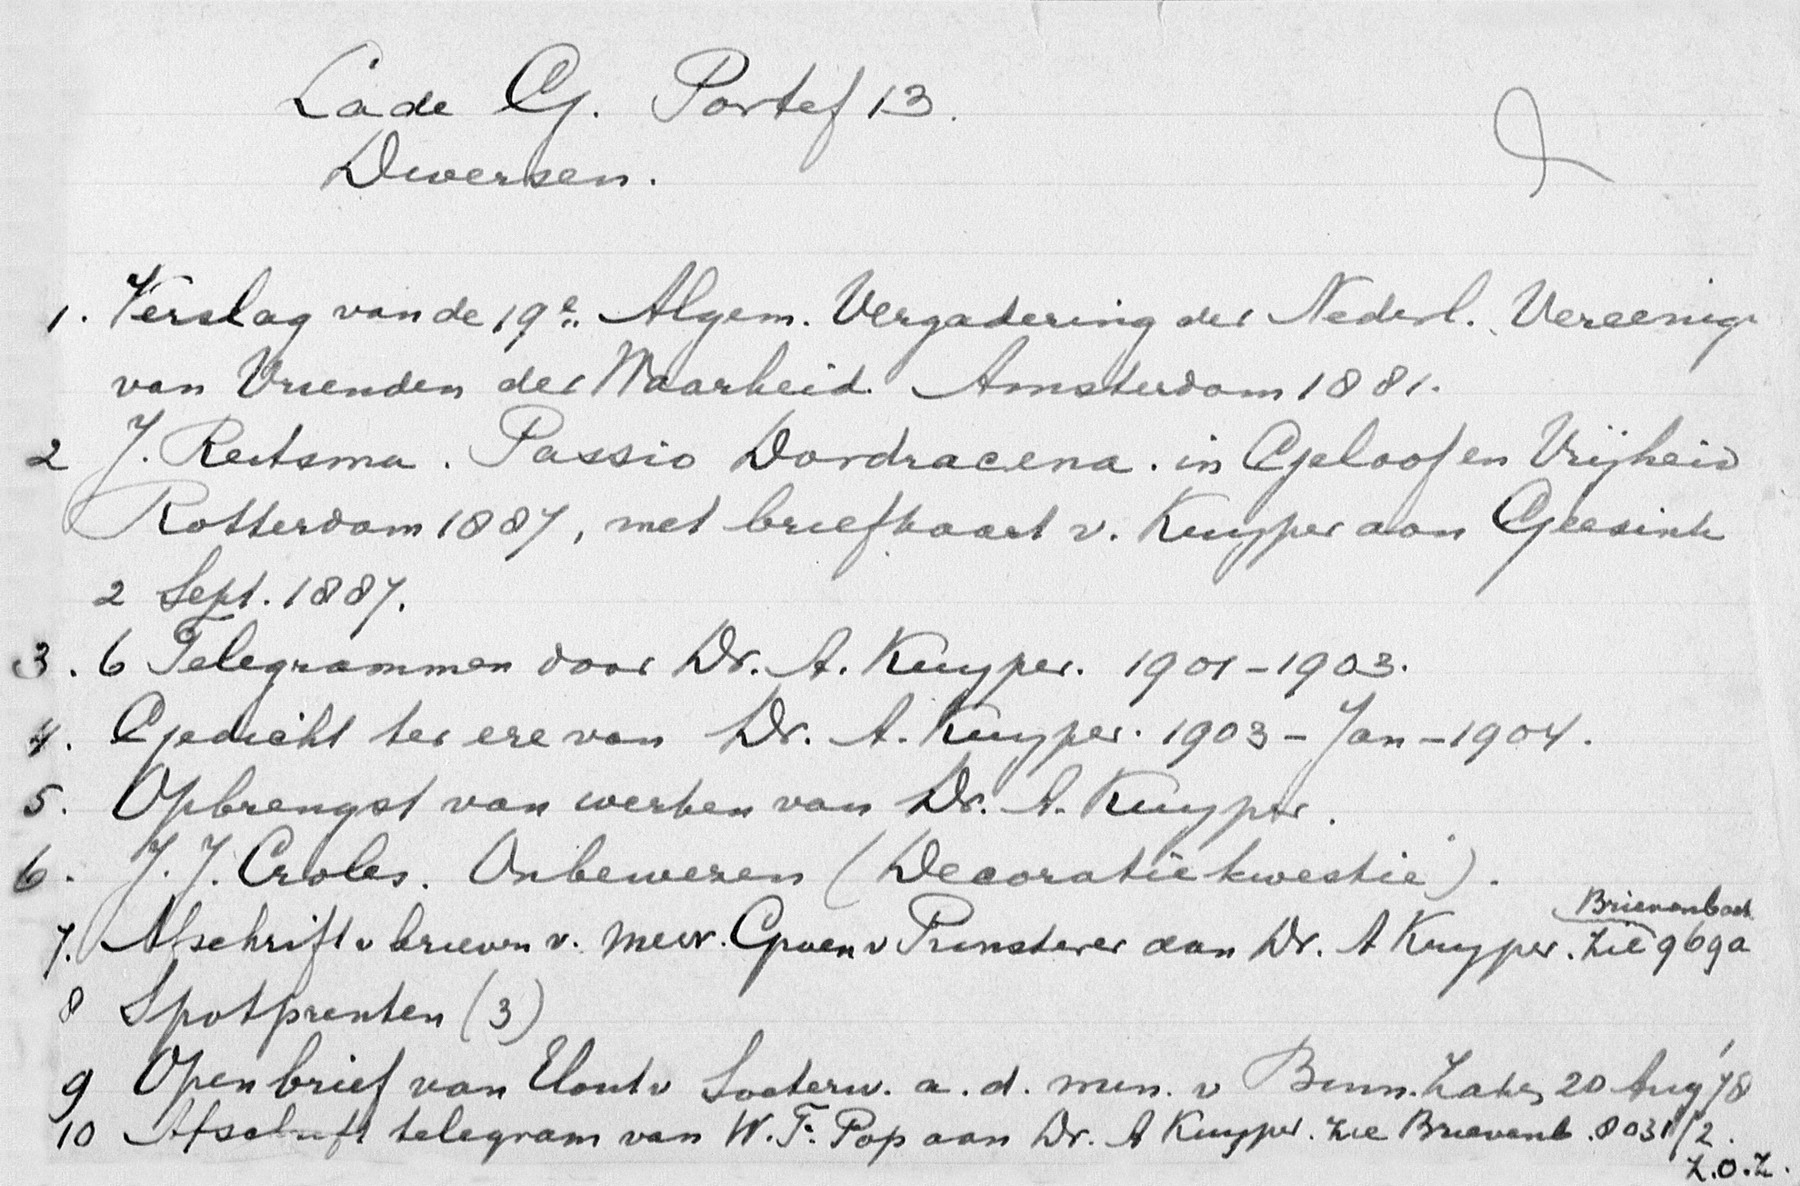 Lade G. Portef 13.
Diversen.
1. Verslag van de 19e. Algem. Vergadering der Nederl. Vereenig.
van Vrienden der Waarheid. Amsterdam 1881.
2 J. Reitsma. Passio Dordracena. in Geloof en Vrijheid
Rotterdam 1887, met briefkaart v. Kuyper aan Geesink
2 Sept. 1887.
3. 6 Telegrammen door Dr. A. Kuyper. 1901-1903.
4. Gedicht ter ere van Dr. A. Kuyper. 1903 - Jan - 1904.
5. Opbrengst van werken van Dr. A. Kuyper.
6. J. J. Croles. Onbewezen (Decoratiekwestie).
7. Afschrift v brieven v. mevr. Groen v Prinsterer aan Dr. A Kuyper. Zie Brievenboek 969a
8 Spotprenten (3)
9 Open brief van Elout v Soeterw. a. d. min. v Binn. Zaken 20 Aug '78
10 Afschrift telegram van W. F. Pop aan Dr. A Kuyper. Zie Brievenb. 8031/2.
Z.O.Z.